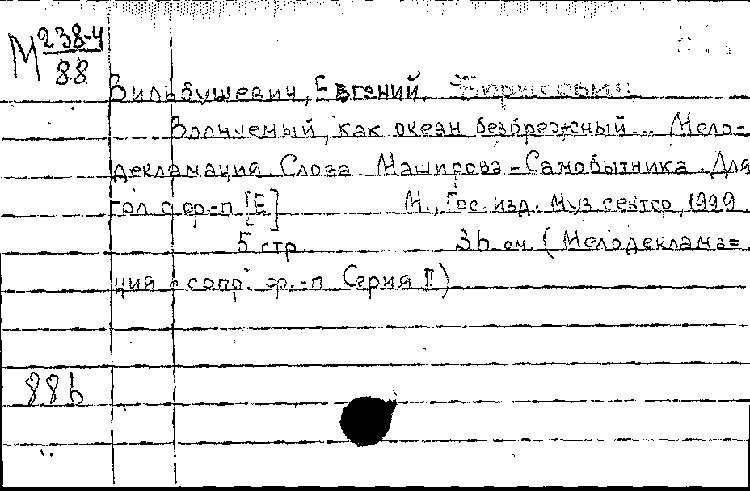 М 238-4
88
Вильбушевич, Евгений Борисович
Волнуемый, как океан безбрежный... Мело-
декламация. Слова Маширова-Самобытника. Для
гол. с фр-п. [Е] М., Гос. изд. Муз. сектор, 1929.
5 стр. 36 см. (Мелодеклама=
ция с сопр. фр.-п. Серия II)
886